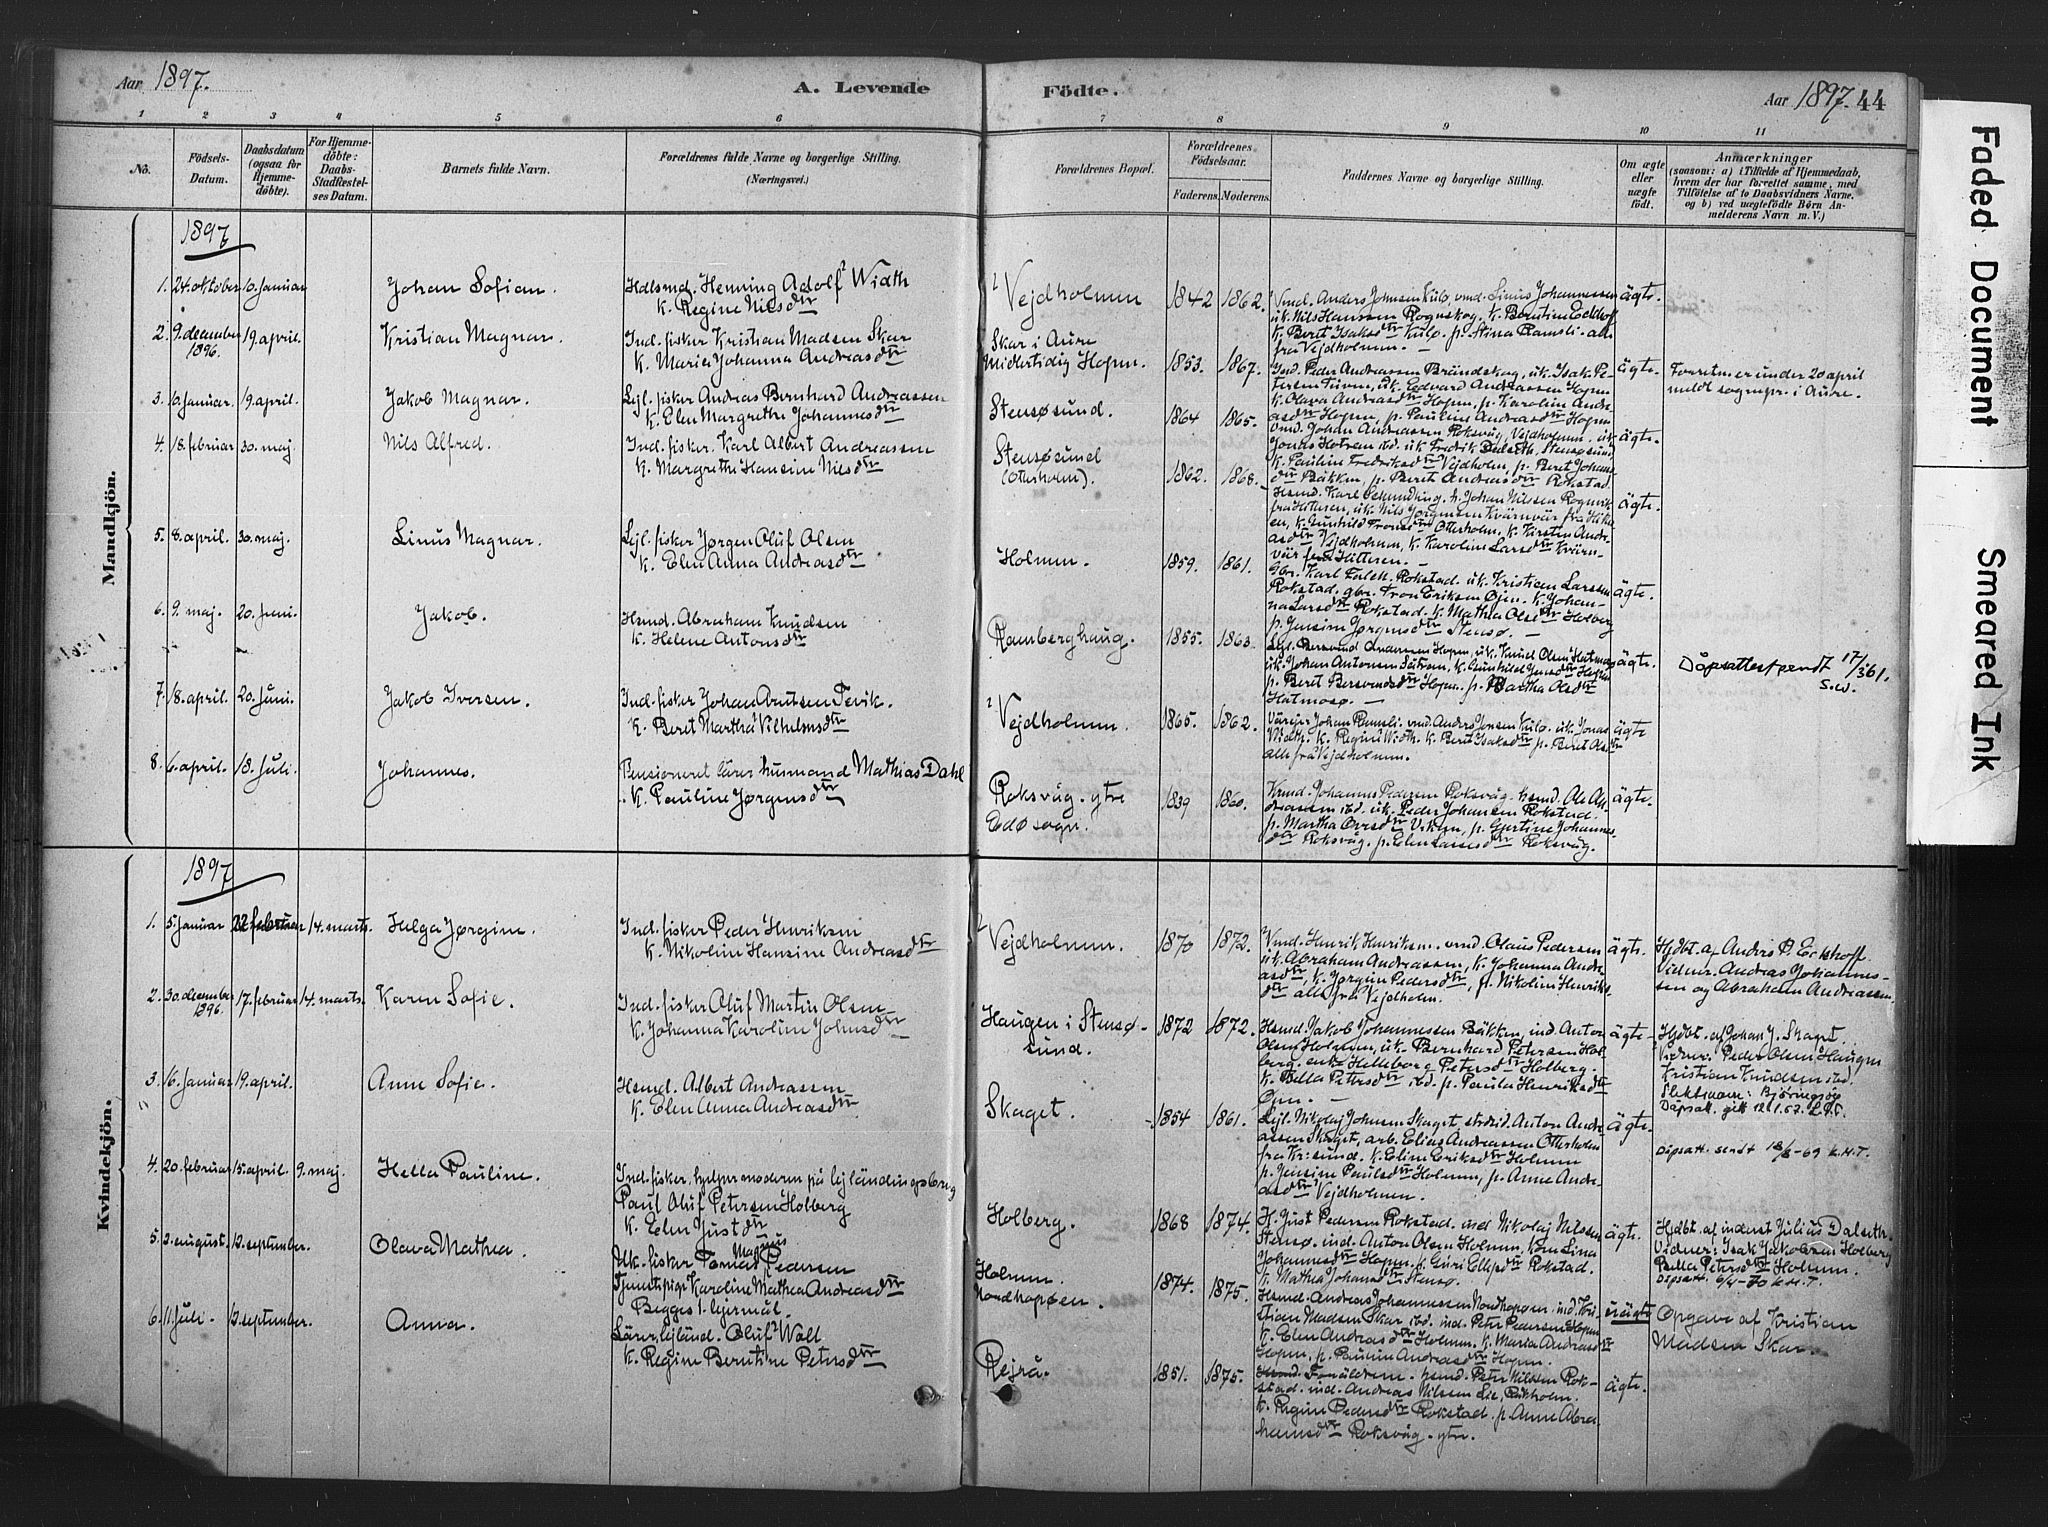 Aar 1897.
A. Levende Födte.
Aar 1897. 44
1 2 3 4 5 6 7 8 9 10 11
No.
Födsels-Datum.
Daabsdatum (ogsaa for Hjemmedöbte).
For Hjemmedöbte: Daabs-Stadfæstelses Datum.
Barnets fulde Navn.
Forældrenes fulde Navne og borgerlige Stilling. (Næringsvei.)
Forældrenes Bopæl.
Forældrenes Födselsaar.
Faderens. Moderens.
Faddernes Navne og borgerlige Stilling.
Om ægte eller uægte födt.
Anmærkninger
(saasom: a) i Tilfælde af Hjemmedaab,
hvem der har forrettet samme, med
Tilföielse af to Daabsvidners Navne.
og b) ved uægtefödte Börn Anmelderens Navn m. V.)
Mandkjön.
1897
1. 24. oktober 10. januar Johan Sofian.
Hdlsmd. Henning Adolf Width
k. Regine Nilsdtr
Vejdholmen 1842 1862.
Vmd. Anders Johnsen Kulø, vmd. Linus Johannessen
uk. Nils Hanssen Rognskog, k. Berntine Eckhof
k. Beret Isaksdtr Kulø. p. Stina Ramsli alle
fra Vejdholmen. ägte.
2. 9. december 1896. 19. april. Kristian Magnar.
Ind. fisker Kristian Madsen Skar
k. Marie Johanna Andreasdtr
Skar i Aure
Midlertidig Hopen. 1853. 1867.
Ind. Peder Andreassen Brändskog, uk. Isak Petersen
uk. Edvard Andreassen Hopen
k. Olava Andreasdtr Hopen, p. Karoline Andreasdtr
Hopen, p. Pauline Andreasdtr Hopen
ägte.
Forretn. er under 20 april
meldt sognepr. i Aure.
3. 6. januar. 19. april. Jakob Magnar.
Lejl. fisker Andreas Bernhard Andreassen
k. Elen Margrethe Johannesdtr
Stensøsund. 1864 1865.
Vmd. Johan Andreassen Roksvåg, Vejdholmen. uk.
Fredrik Dalseth. Stensøsund
k. Pauline Fredriksdtr Vejdholm, p. Beret Johansdtr
Bäkken, p. Beret Andreasdtr Rokstad.
ägte.
4. 18. februar 30. maj. Nils Alfred.
Ind. fisker. Karl Albert Andreassen
k. Margrethe Hansine Nilsdtr
Stensøsund
(Otterholm). 1862. 1868.
Johan Nilsen
fra Hitteren, uk. Nils Jørgensen Kvärnvär fra
k. Gunhild Otterholm, k. Kirsten Andreasdtr
Vejdholmen, k. Karoline Larsdtr Kvärnvär
fra Hitteren.
ägte.
5. 8. april. 30. maj. Linus Magnar.
Lejl. fisker Jørgen Oluf Olsen
k. Elen Anna Andreasdtr
Holmen. 1859. 1861.
Gbr. Karl Falck Rokstad. uk. Kristian Larssen
Rokstad. gbr. Tron Eriksen Øjen. k. Johanna
Larsdtr Rokstad. k. Mathea Olsdtr Holberg
p. Jensine Jørgensdtr Stensø.
ägte.
6. 9. maj. 20. juni. Jakob.
Hsmd. Abraham Knudsen
k. Helene Antonsdtr
Ramberghaug. 1855. 1863.
Andersen Hopen, uk. Knud Olsen Hatmosø
uk. Johan Antonsen k. Gunhild Jensdtr
p. Beret Hopen. p. Martha Olsdtr
Hatmosø.
ägte.
Dåpsattest sendt 17/3 61.
S.W.
7. 18. april. 20. juni. Jakob Iversen.
Ind. fisker Johan Arntsen Tevik.
k. Beret Martha Vilhelmsdtr
Vejdholmen. 1865. 1862.
Johan Ramsli. vmd. Anders Jonsen Kulø. uk. Jonas
Width. k. Regine Width. k. Berit Isaksdtr p. Beret Olsdtr
alle fra Vejdholmen.
ägte
8. 6. april. 18. juli. Johannes.
Pensioneret lärer husmand Mathias Dahl
k. Pauline Jørgensdtr
Roksvåg. ytre
Edø sogn. 1839 1860.
Johannes Pedersen Roksvåg. hsmd. Ole Andreassen
ibd. uk. Peder Johansen Rokstad.
p. Martha Viken, p. Gjertine Johannesdtr
Roksvåg. p. Elen Lassesdtr Roksvåg.
ägte.
Kvindekjön.
1897
1. 5. januar 22 februar 14. marts. Helga Jørgine.
Ind. fisker Peder Henriksen
k. Nikoline Hansine Andreasdtr
Vejdholmen. 1870 1872.
Vmd. Henrik Henriksen. vmd. Olaus Pedersen
uk. Abraham Andreassen, k. Johanna Andreasdtr,
k. Jørgine Pedersdtr, p. Nikoline Henriksdtr
alle fra Vejdholm.
ägte.
Hjdbt. af Anders P. Eckhoff
Vidner. Andreas Johannessen
og Abraham Andreassen.
2. 30. december 1896. 17. februar 14. marts. Karen Sofie.
Ind. fisker Oluf Martin Olsen
k. Johanna Karoline Johnsdtr
Haugen i Stensøsund. 1872 1872.
Hsmd. Jakob Johannessen Bäkken, ind. Anton
Olsen Holmen, uk. Bernhard Petersen Holberg.
enke Helleborg Petersdtr Holberg.
k. Bella Petersdtr ibd. p. Paula Henriksdtr
Øjen.
ägte
Hjdbt. af Johan J. Skaget.
Vidner: Peder Olsen Haugen
Kristian Knudsen ibd.
Slektsnavn: Björingsög
Dåpsatt. gitt 12.1.52. L.T.C.
3. 16. januar 19. april. Anne Sofie.
Hsmd. Albert Andreassen
k. Elen Anna Andreasdtr
Skaget. 1854 1861.
Lejl. Nikolaj Johnsen Skaget, Anton Andreassen
Skaget, arb. Elias Andreassen Otterholm
fra Kr.sund. k. Eline Eriksdtr Holmen
p. Jensine Paulsdtr Holmen, p. Anne Andreasdtr
Vejdholmen.
ägte.
Dåpsatt. sendt 18/8-69 K.H.T.
4. 20. februar 15. april. 9. maj. Hella Pauline.
Ind. fisker, hjelper moderen på lejländingsbrug
Paul Oluf Petersen Holberg
k. Elen Justdtr
Holberg. 1868 1874.
H. Just Pedersen Rokstad. ind. Nikolaj Nilssen
Stensø. ind. Anton Olsen Holmen, Lina
Johannesdtr Hopen, k. Guri Rokstad.
k. Mathea Johansdtr Stensø.
ägte.
Hjdbt. af inderst Julius Dalseth.
Vidner: Isak Jakobsen Holberg
Bella Petersdtr Holmen.
Dåpsatt. 6/4-70 K.H.T.
5. 2. august. 12. september. Olava Mathea.
Uk. fisker Tomas Magnus Pedersen
Tjenstpige Karoline Mathea Andreasdtr
Begges 1. lejermål.
Holmen.
Nordhopøen. 1874. 1875.
Hsmd. Andreas Johannessen Nordhopøen. ind. Kristian
Madsen Skar ibd. ind. Peter Pedersen Hopen
k. Elen Andreasdtr Holmen. k. Maria Andreasdtr
Hopen, p. Pauline Andreasdtr Hopen.
uägte
Opgave af Kristian
Madsen Skar.
6. 11. juli. 12. september. Anna.
Lärer, lejländ. Oluf Wolt
k. Regine Berntine Petersdtr
Rejrå. 1851. 1875.
Foräldrene. hsmd. Peter Nilssen Rokstad.
ind. Andreas Nilssen
k. Regine Pedersdtr Rokstad. p. Anne Abrahamsdtr
Roksvåg. ytre.
ägte.
Faded Document Smeared Ink